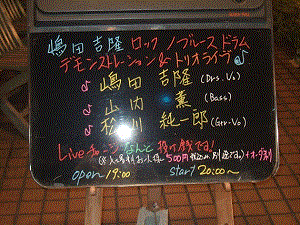 嶋田吉隆 ロック/ブルース ドラム
デモンストレーション & トリオライブ♪
♪嶋田 吉隆 (Drs.Vo)
♪山内 薫 (Bass)
♪松川 純一郎 (Gtr.Vo)
Liveチャージなんと投げ銭です!
500円 別途です。)+オーダー別
open 19:00 start 20:00〜